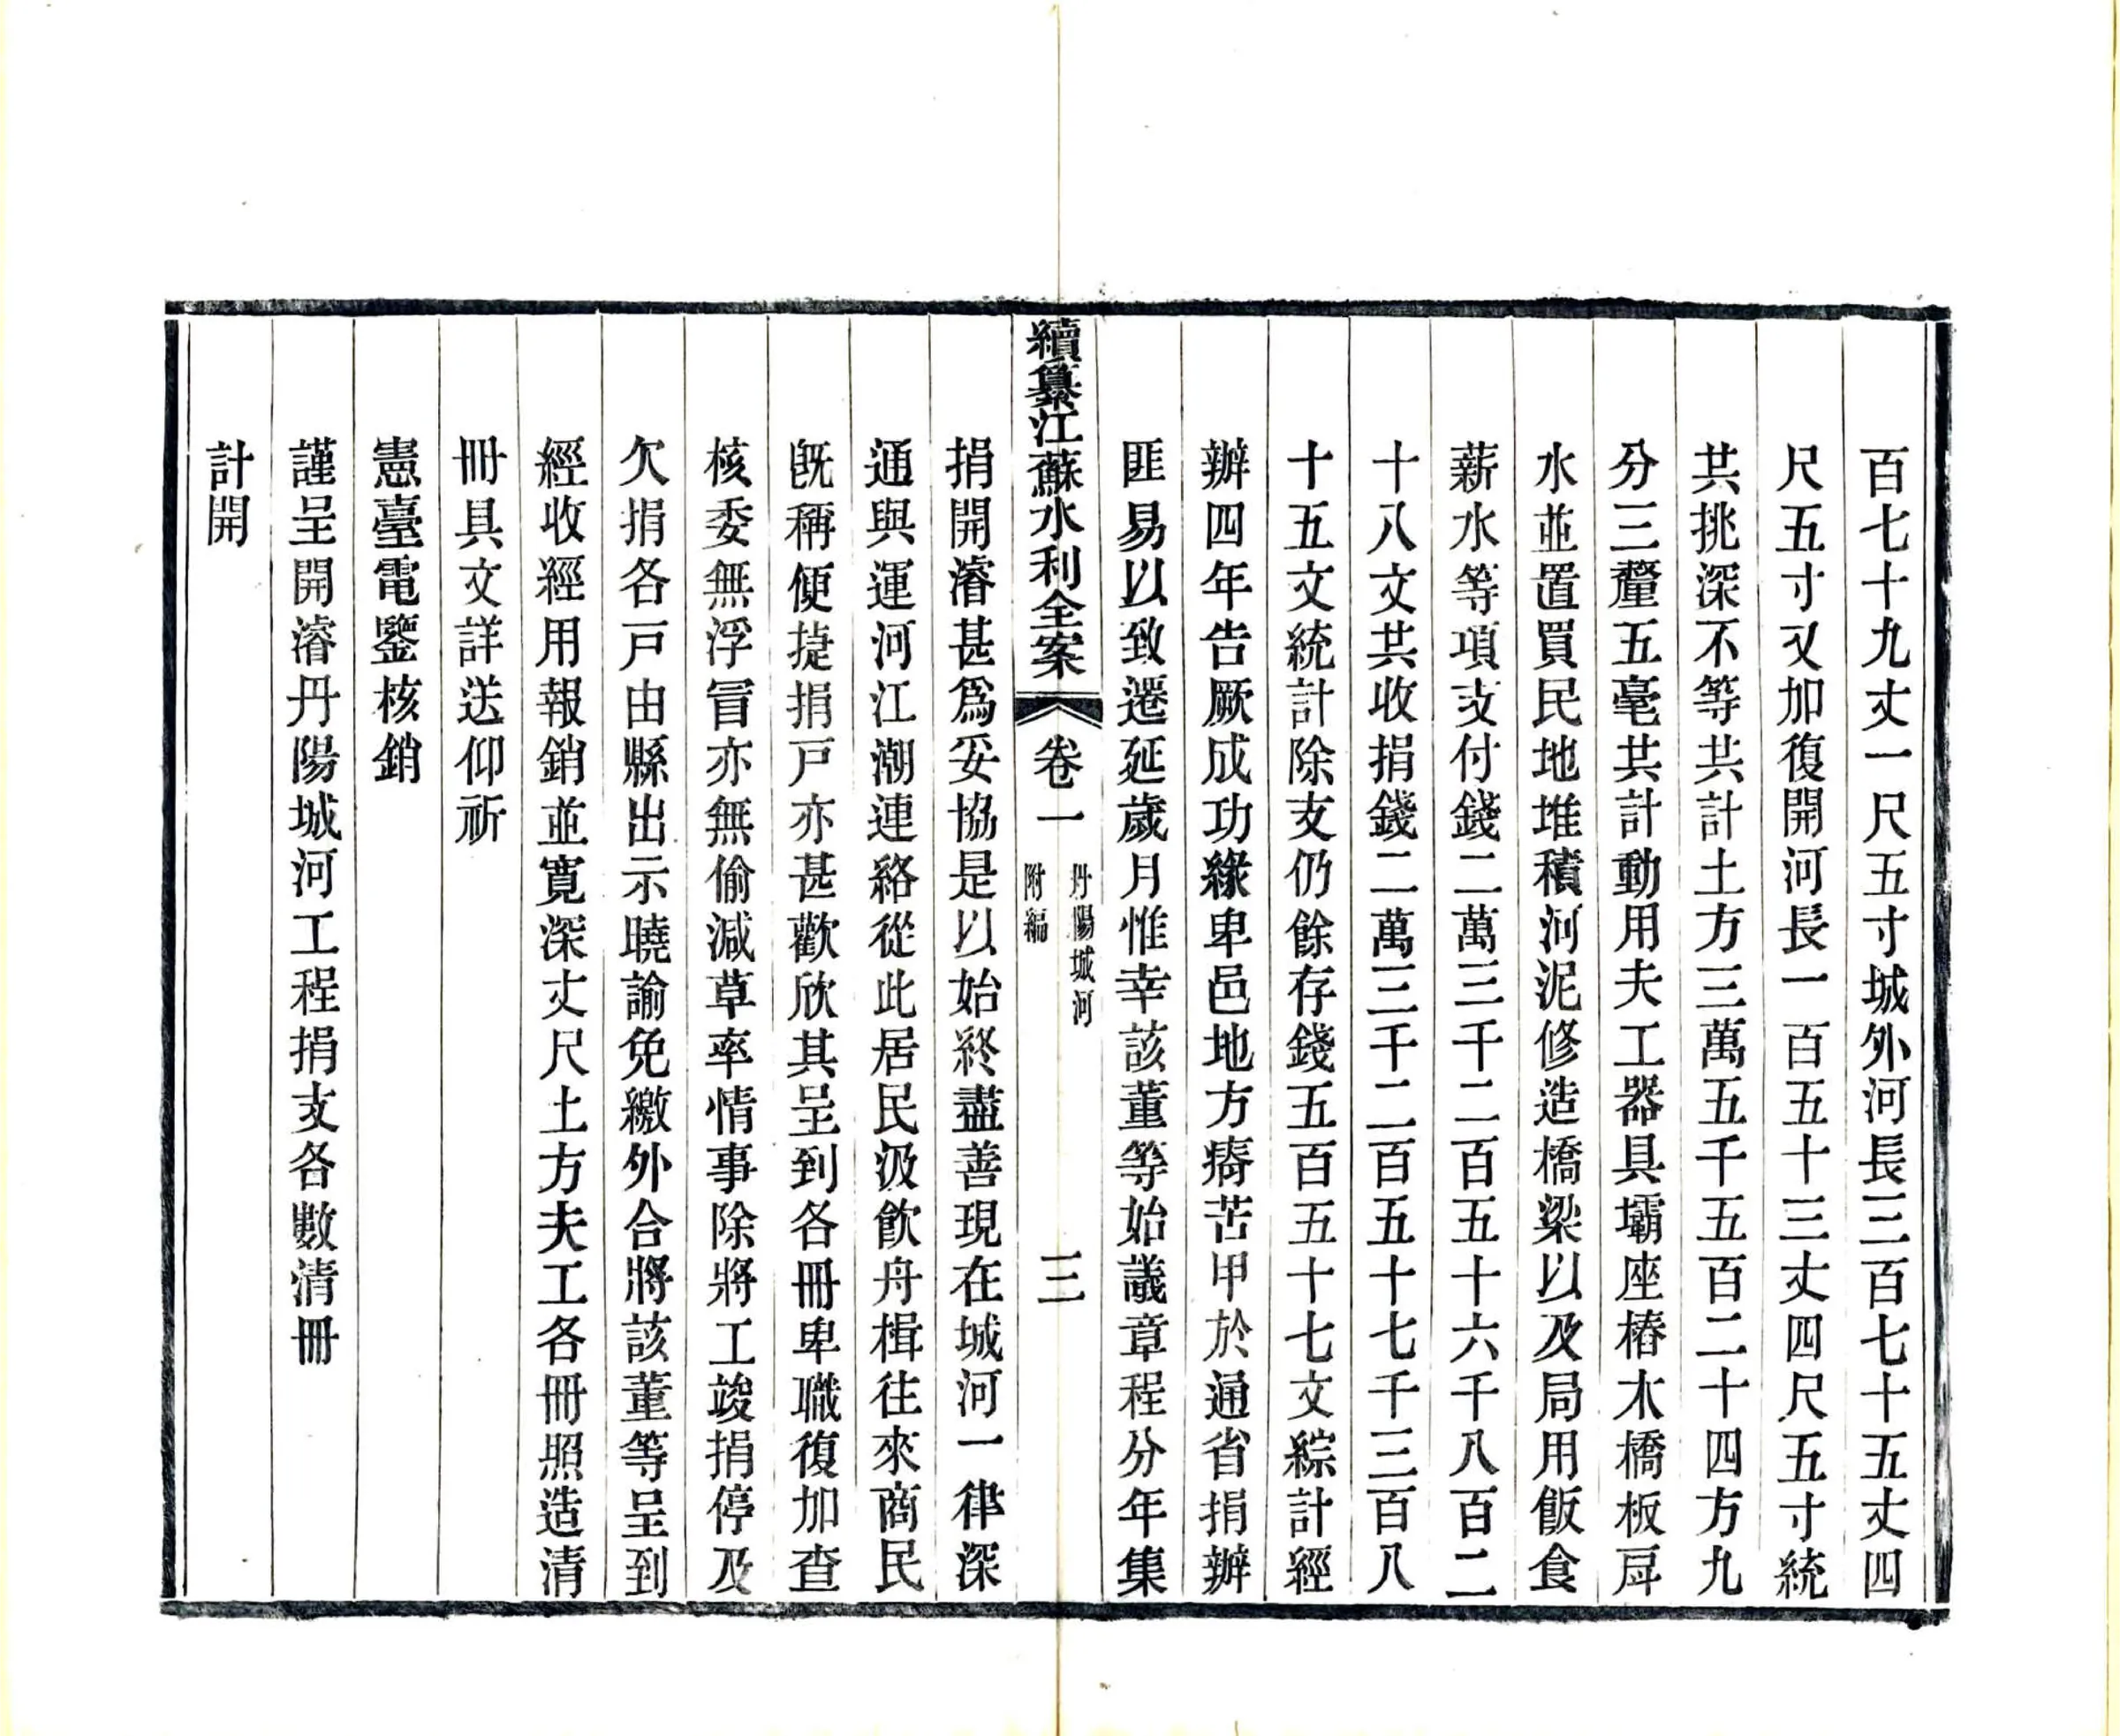 百七十九丈一尺五寸城外河長三百七十五丈四
尺五寸又加復開河長一百五十三丈四尺五寸統
共挑深不等共計土方三萬五千五百二十四方九
分三釐五毫共計動用夫工器具壩座樁木橋板戽
水並置買民地堆積河泥修造橋梁以及局用飯食
薪水等項支付錢二萬三千二百五十六千八百二
十八文共收捐錢二萬三千二百五十七千三百八
十五文統計除支仍餘存錢五百五十七文綜計經
辦四年告厥成功緣卑邑地方瘠苦甲於通省捐辦
匪易以致遷延歲月惟幸該董等始議章程分年集
續纂江蘇水利全案
卷一
丹陽城河
附編
三
捐開濬甚爲妥協是以始終盡善現在城河一律深
通與運河江潮連絡從此居民汲飲舟楫往來商民
既稱便捷捐戶亦甚歡欣其呈到各冊卑職復加查
核委無浮冒亦無偷減草率情事除將工竣捐停及
欠捐各戶由縣出示曉諭免繳外合將該董等呈到
經收經用報銷並寬深丈尺土方夫工各冊照造清
冊具文詳送仰祈
憲臺電鑒核銷
謹呈開濬丹陽城河工程捐支各數清冊
計開